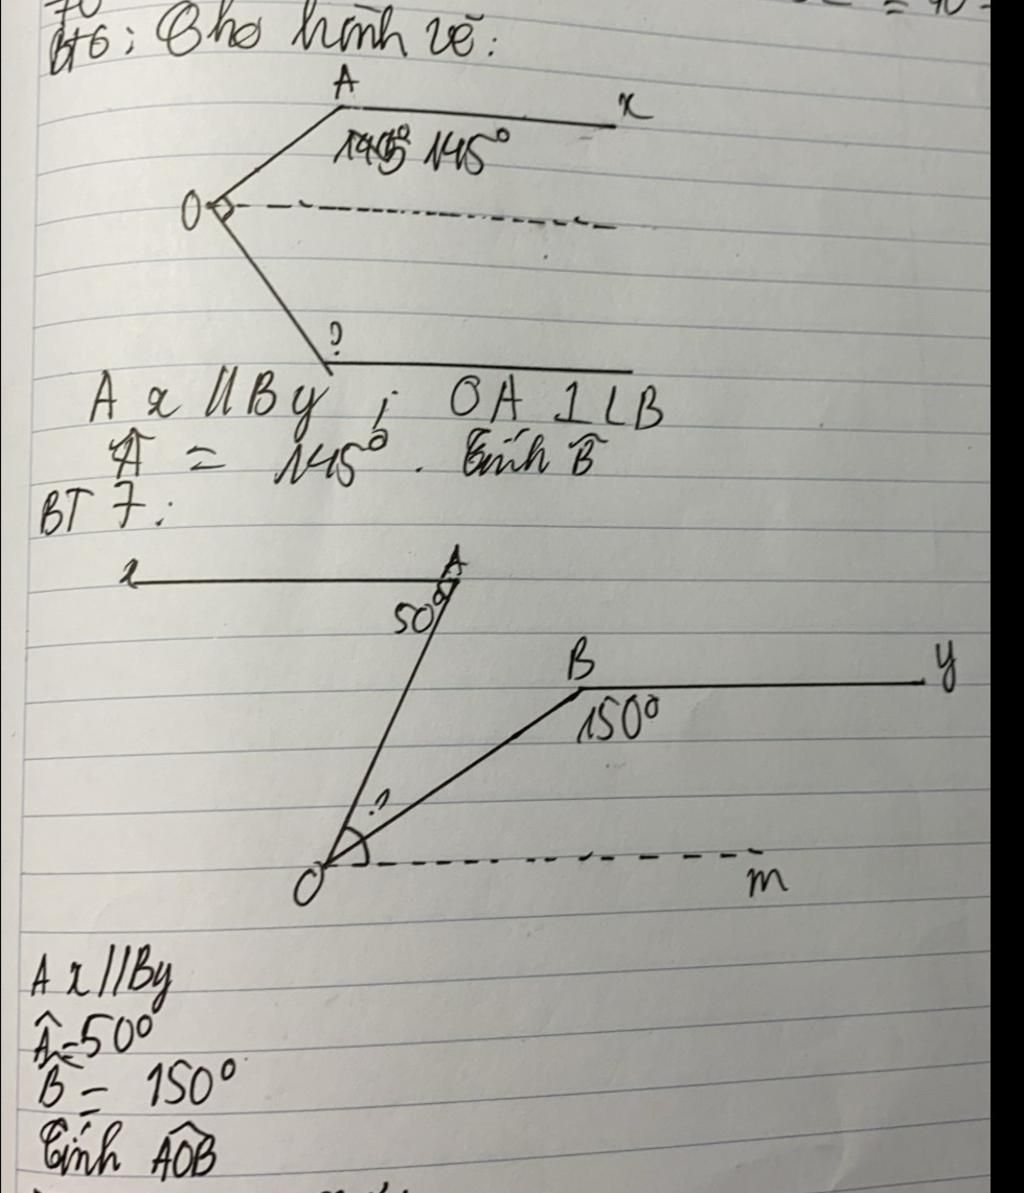 70
= 40
BT6: Cho hình vẽ:
A
x
145°
O
?
Ax // By ; OA ⊥ LB
Â = 145°. Tính B̂
BT 7:
x
A
50°
B
y
150°
?
O
m
Ax//By
Â=50°
B̂ = 150°
Tính AOB